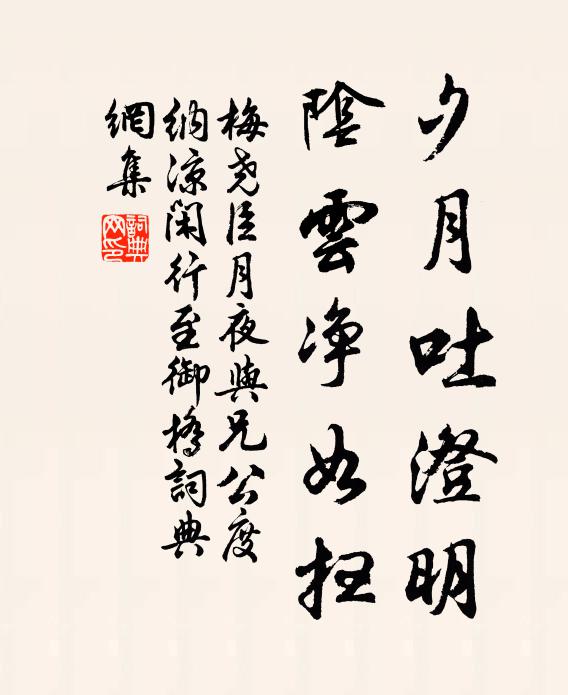 夕月吐澄明
陰雲净如扫
梅尧臣月夜與兄公度
納凉閑行至御橋詞典
網集
詞典網印